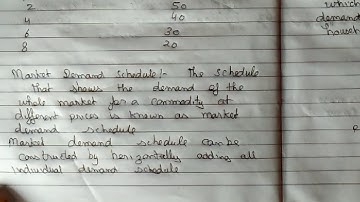 2 50
4 40
6 30
8 20
Market Demand Schedule:- The schedule
that shows the demand of the
whole market for a commodity at
different prices is known as market
demand schedule
Market demand schedule can be
constructed by horizontally adding all
individual demand schedule
which
demand
househ